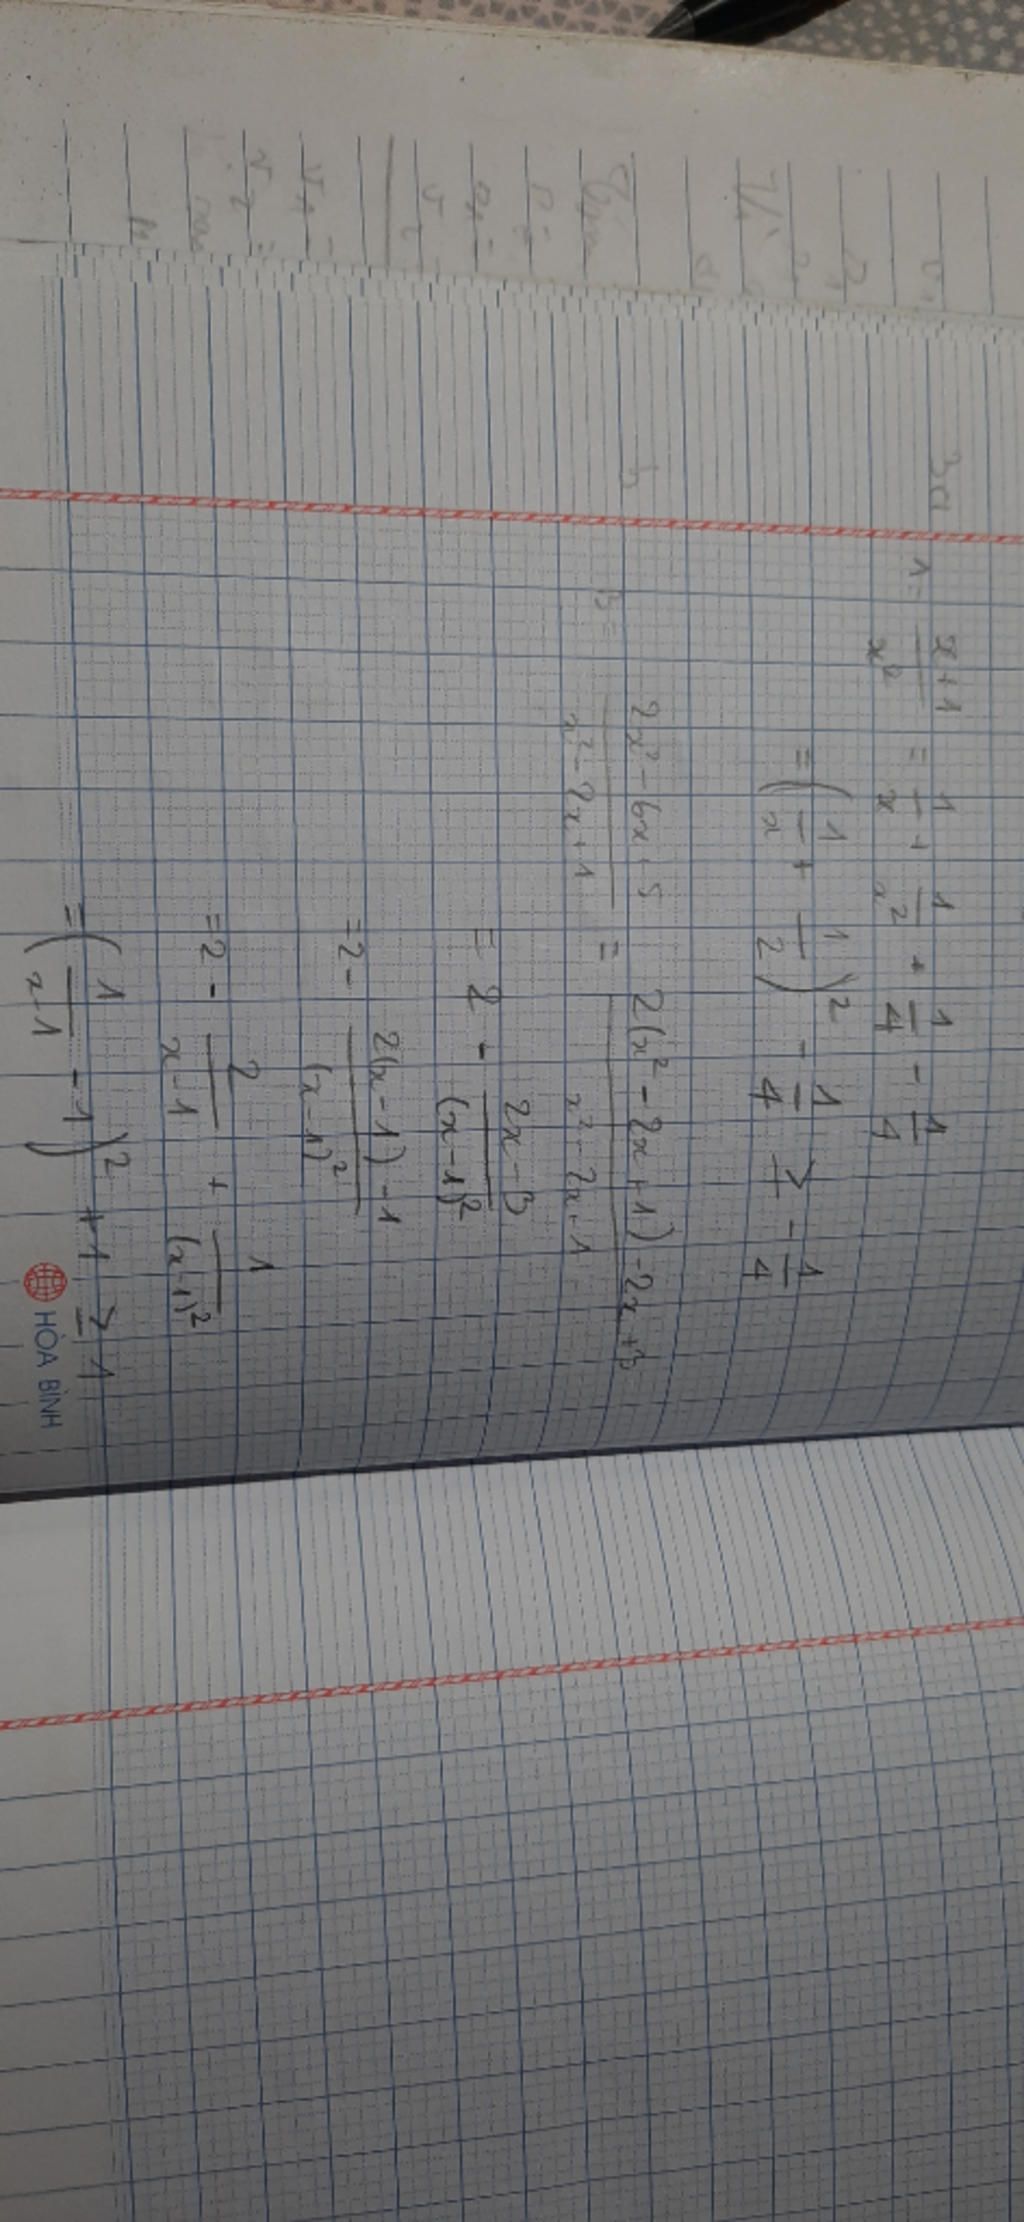 3a
A = x+1/x² = 1/x + 1/x² + 1/4 - 1/4
= (1/x + 1/2)² - 1/4 ≥ -1/4
b
B = 2x² - 6x + 5/x² - 2x + 1 = 2(x² - 2x + 1) - 2x + 3/x² - 2x + 1
= 2 - 2x - 3/(x - 1)²
= 2 - 2(x - 1) - 1/(x - 1)²
= 2 - 2/x - 1 + 1/(x - 1)²
= (1/x-1 - 1)² + 1 ≥ 1
HÒA BÌNH